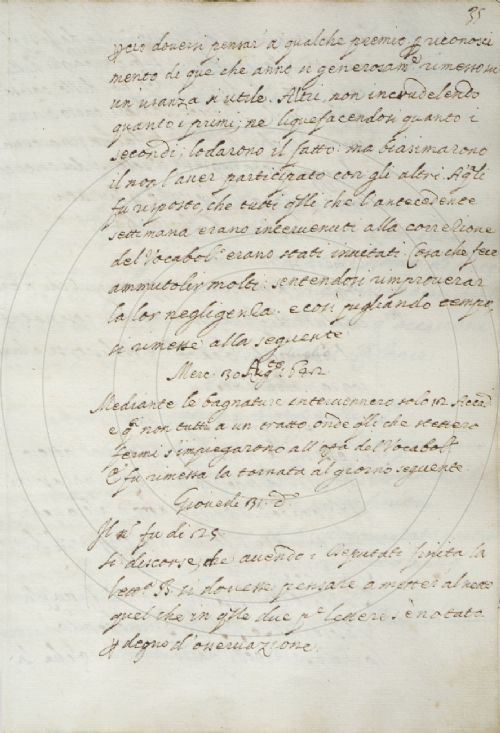 35
p ciò doversi pensar a qualche premio, p riconosci
mento di que che anno sì generosam.e rimesso in
un usanza sì utile. Altri, non incrudelendo
quanto i primi; ne liquefacendosi quanto i
secondi; lodarono il fatto: ma biasimarono
il non l'aver participato con gli altri. A q.li
fu risposto, che tutti q.lli che l'antecedente
settimana erano intervenuti alla correzione
del Vocabol.o erano stati invitati. Cosa che fece
ammutolir molti: sentendosi rimproverar
la lor negligenza. e così pigliando tempo,
si rimesse alla seguente
Merc. 30 Ag.to 1642
Mediante le bagnature intervennero solo 12 Accad.
e q.i non tutti a un tratto, onde q.lli che stettero
fermi s'impiegarono all'op.a del Vocabol.o
E fu rimessa la tornata al giorno seguente.
Giovedì 31. d.o
Il n.o fu di 125
Si discorse, che avendo i Deputati finita la
lett.a B. si dovesse pensare a metter al netto
quel che in q.lle due p.e lettere s'è notato
p degno d'osservazione.